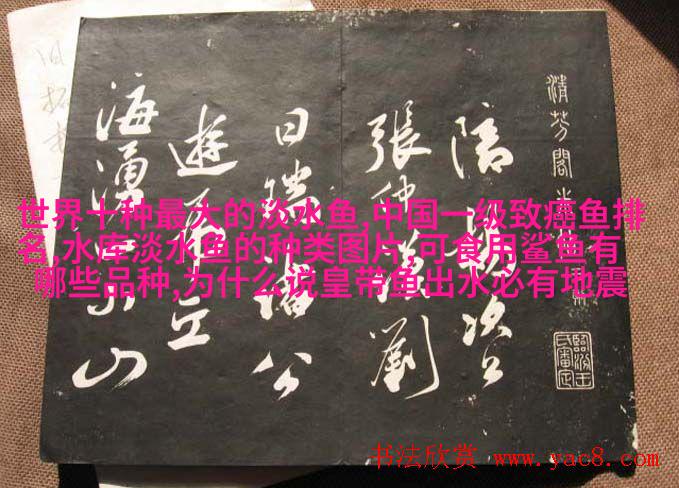 清芳閣
陪
張仲謨劉
日 公
遊 丘
海湧 山
世界十种最大的淡水鱼,中国一级致癌鱼排
名,水库淡水鱼的种类图片,可食用鲨鱼有
哪些品种,为什么说皇带鱼出水必有地震
书法欣赏 www.yac8.com